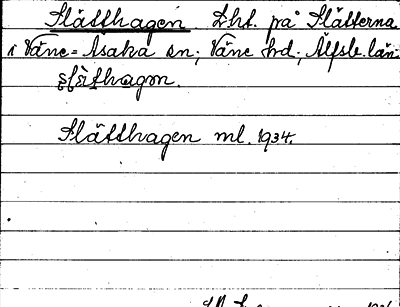 Slätthagen Lht. på Slätterna
i Väne-Åsaka sn; Väne hd; Älfsb. län.
Slätthagen ml. 1934.